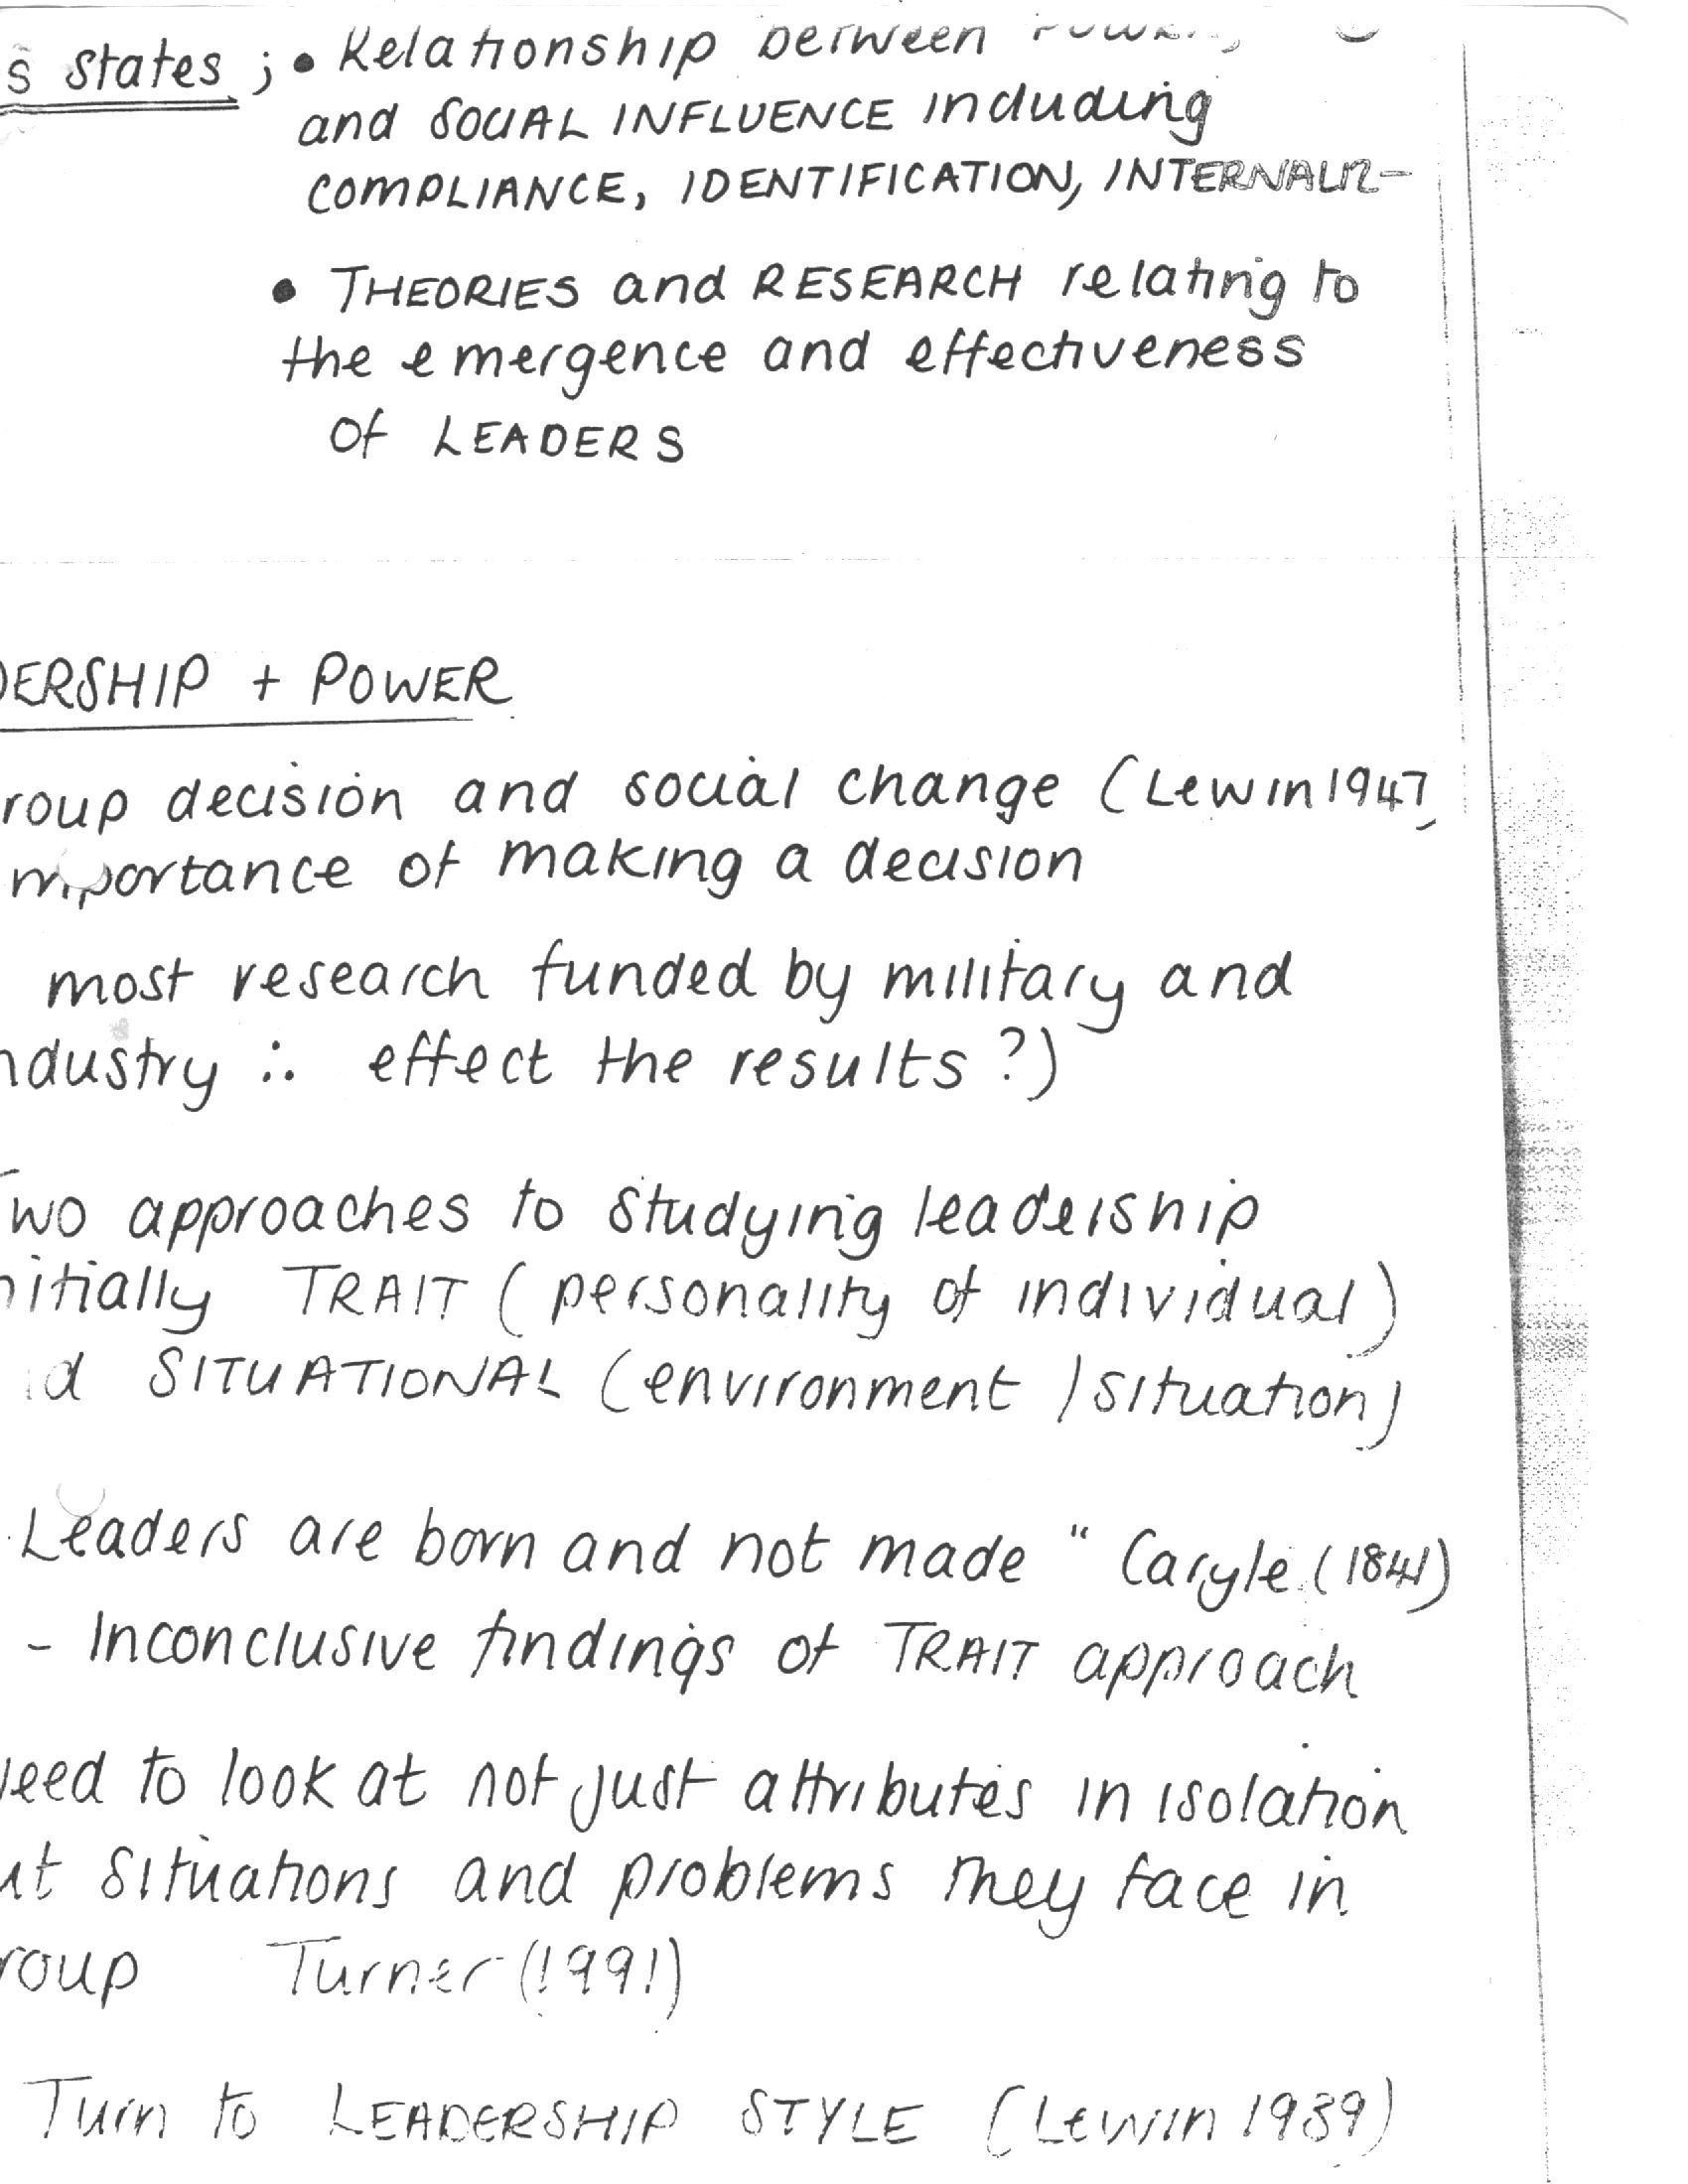 s states ; • Relationship between
and SOCIAL INFLUENCE including
COMPLIANCE, IDENTIFICATION, INTERNALIZ-
• THEORIES and RESEARCH relating to
the emergence and effectiveness
of LEADERS
DERSHIP + POWER
roup decision and social change (Lewin 1947)
mportance of making a decision
most research funded by military and
ndustry ∴ effect the results ?)
Two approaches to studying leadership
nitially TRAIT (personality of individual)
d SITUATIONAL (environment / situation)
Leaders are born and not made " Caryle (1841)
- Inconclusive findings of TRAIT approach
eed to look at not just attributes in isolation
ut situations and problems they face in
roup Turner (1991)
Turn to LEADERSHIP STYLE (Lewin 1939)